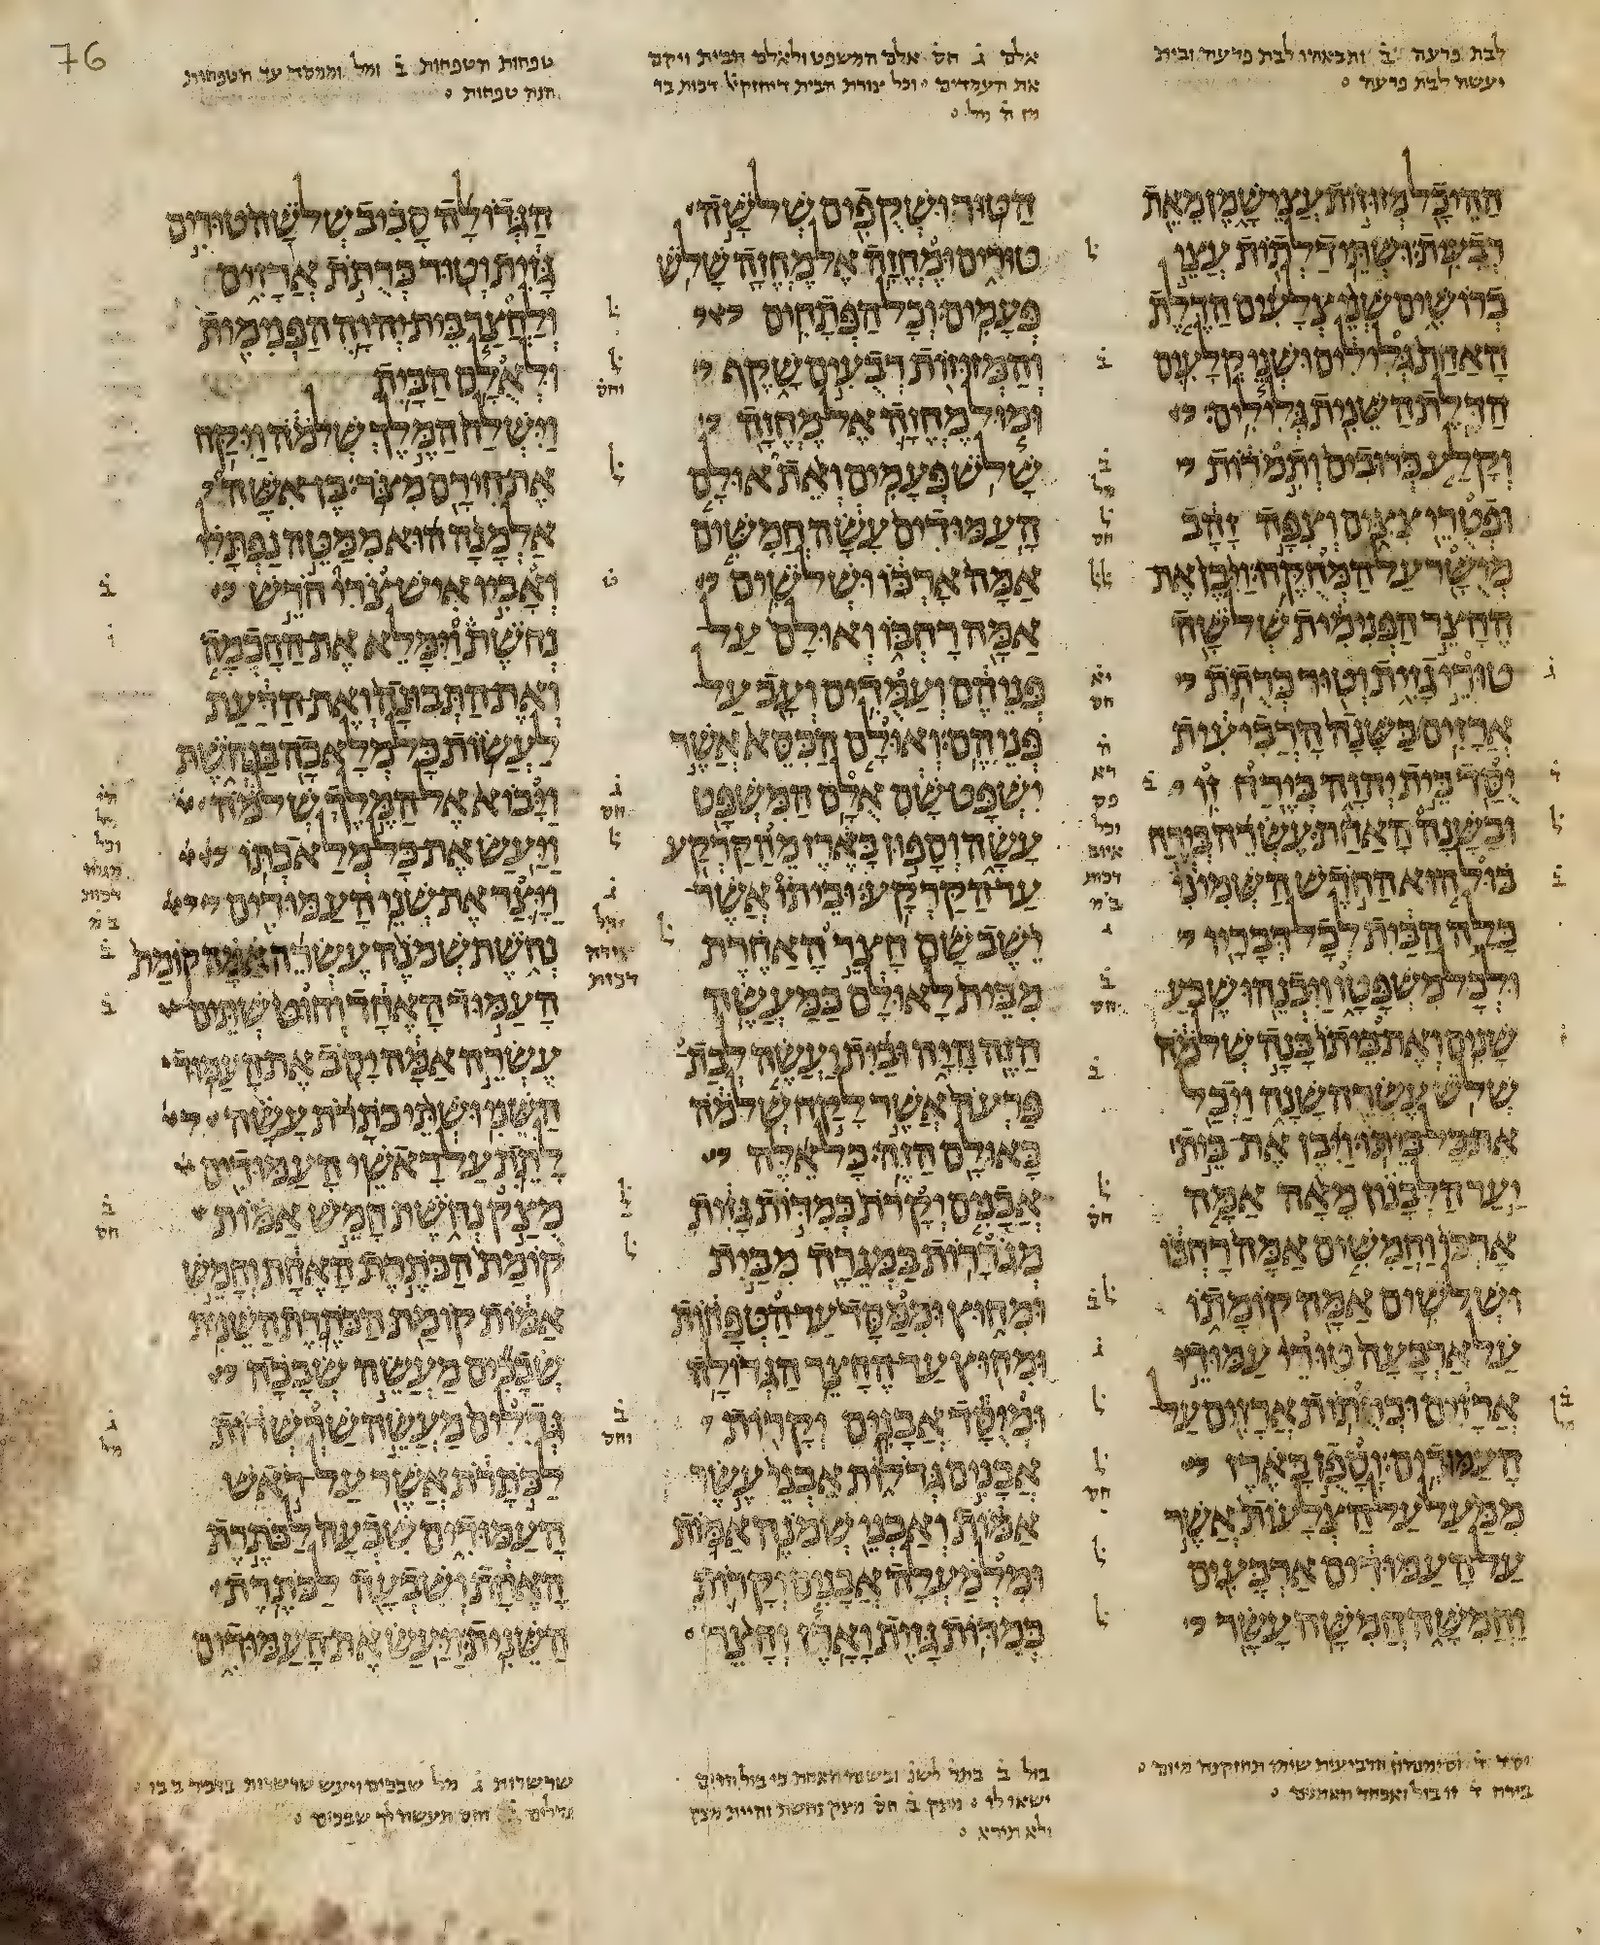 לבת פרעה ב ותבאהו לבת פרעה ובית
יעשה לבת פרעה
אלם ג חס אלם המשפט ולאלם הבית ויקם
את העמדים וכל צורת הבית דיחזקיל דכות בר
מן ה מל
טפחות הטפחות ב ומל וממסד עד הטפחות
הנה טפחות
ההיכל מזוזות עצי שמן מאת
רבעית ושתי דלתות עצי
ברושים שני צלעים הדלת
האחת גלילים ושני קלעים
הדלת השנית גלילים
וקלע כרובים ותמרות
ופטרי צצים וצפה זהב
מישר על המחקה ויבן את
החצר הפנימית שלשה
טורי גזית וטור כרתת
ארזים בשנה הרביעית
יסד בית יהוה בירח זו
ובשנה האחת עשרה בירח
בול הוא החדש השמיני
כלה הבית לכל דבריו
ולכל משפטו ויבנהו שבע
שנים ואת ביתו בנה שלמה
שלש עשרה שנה ויכל
את כל ביתו ויבן את בית
יער הלבנון מאה אמה
ארכו וחמשים אמה רחבו
ושלשים אמה קומתו
על ארבעה טורי עמודי
ארזים וכרתות ארזים על
העמודים וספן בארז
ממעל על הצלעות אשר
על העמודים ארבעים
וחמשה חמשה עשר
הטור ושקפים שלשה
טורים ומחזה אל מחזה שלש
פעמים וכל הפתחים
והמזוזות רבעים שקף
ומול מחזה אל מחזה
שלש פעמים ואת אולם
העמודים עשה חמשים
אמה ארכו ושלשים
אמה רחבו ואולם על
פניהם ועמדים ועב על
פניהם ואולם הכסא אשר
ישפט שם אלם המשפט
עשה וספון בארז מהקרקע
עד הקרקע וביתו אשר
ישב שם חצר האחרת
מבית לאולם כמעשה
הזה היה ובית יעשה לבת
פרעה אשר לקח שלמה
כאולם הזה כל אלה
אבנים יקרת כמדות גזית
מגררות במגרה מבית
ומחוץ וממסד עד הטפחות
ומחוץ עד החצר הגדולה
ומיסד אבנים יקרות
אבנים גדלות אבני עשר
אמות ואבני שמנה אמות
ומלמעלה אבנים יקרות
כמדות גזית וארז וחצר
הגדולה סביב שלשה טורים
גזית וטור כרתת ארזים
ולחצר בית יהוה הפנימית
ולאלם הבית
וישלח המלך שלמה ויקח
את חירם מצר בן אשה
אלמנה הוא ממטה נפתלי
ואביו איש צרי חרש
נחשת וימלא את החכמה
ואת התבונה ואת הדעת
לעשות כל מלאכה בנחשת
ויבוא אל המלך שלמה
ויעש את כל מלאכתו
ויצר את שני העמודים
נחשת שמנה עשרה אמה קומת
העמוד האחד וחוט שתים
עשרה אמה יסב את העמוד
השני ושתי כתרת עשה
לתת על ראשי העמודים
מצק נחשת חמש אמות
קומת הכתרת האחת וחמש
אמות קומת הכתרת השנית
שבכים מעשה שבכה
גדלים מעשה שרשרות
לכתרת אשר על ראש
העמודים שבעה לכתרת
האחת ושבעה לכתרת
השנית ויעש את העמודים
בירח ד זו בול ואפחד האתנים
בול ב בתר לשנ ובשנה האחת כי בול הרים
ישאו לו מצק ב חס מצק נחשת והיית מצק
ולא תירא
שרשרות ג מל שבכים ויעש שרשרות בדביר
גדלים ב וחס תעשה לך שבכים